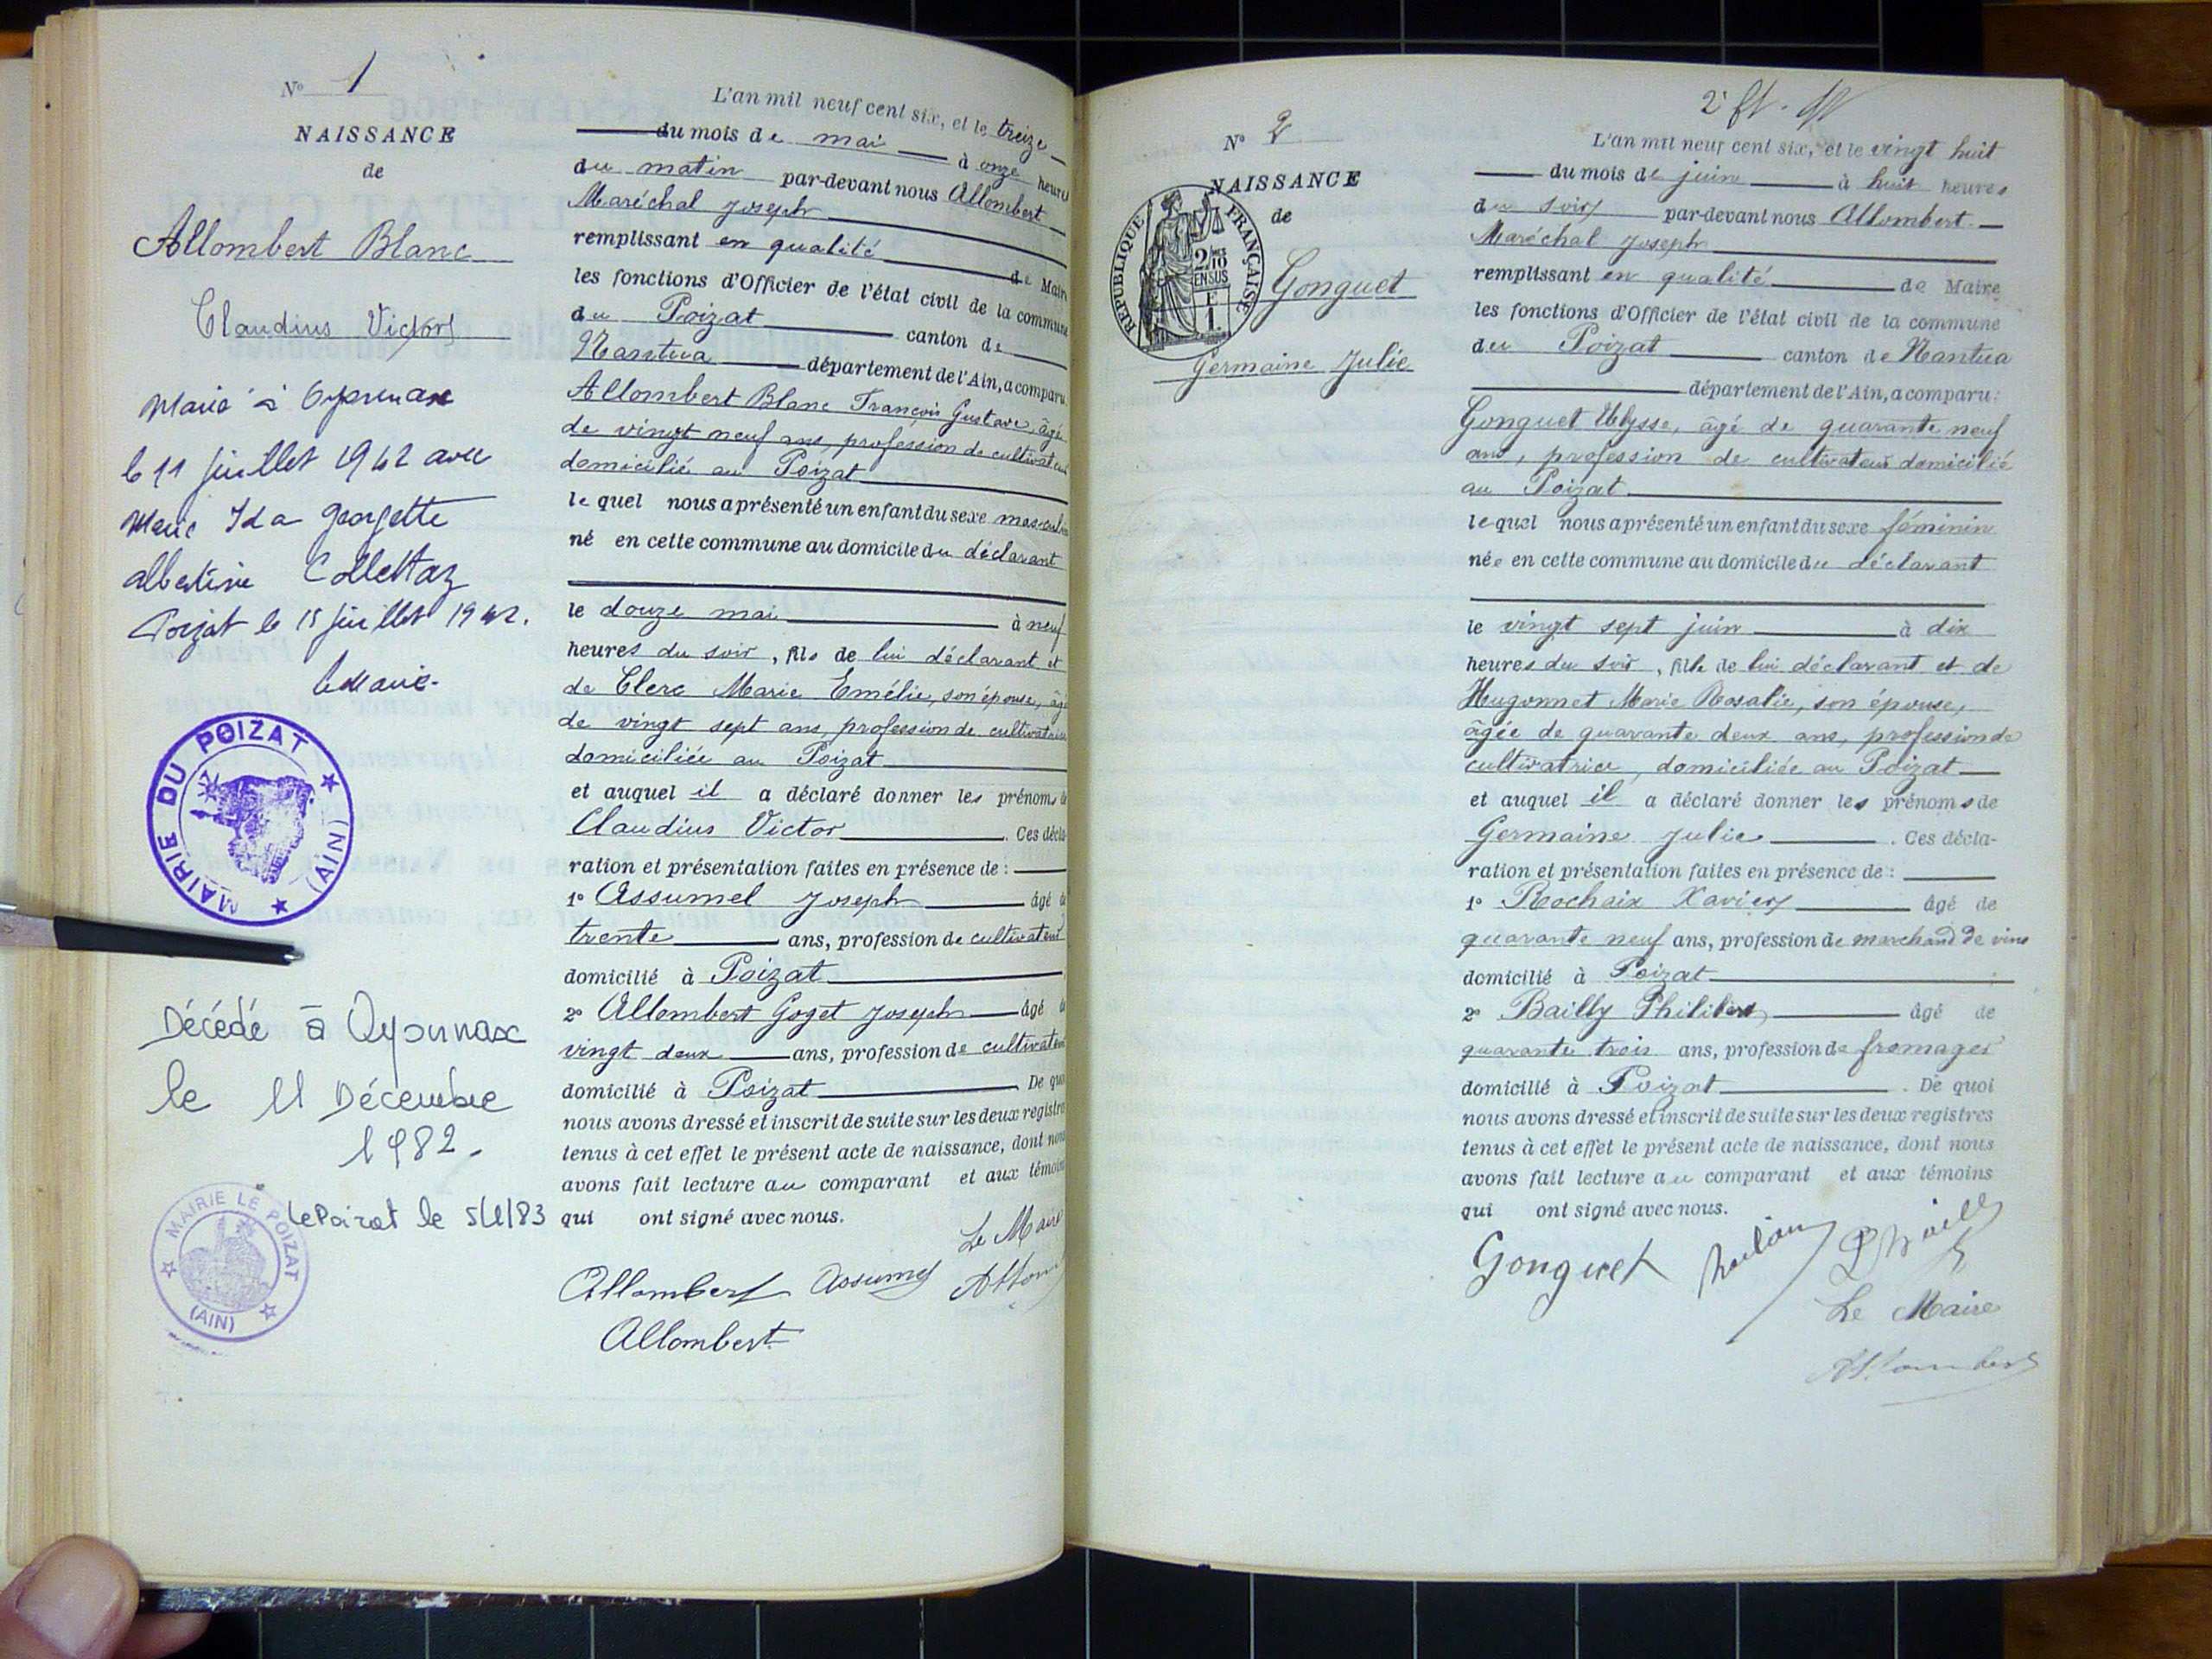 N° 1
NAISSANCE
de
Allombert Blanc
Claudius Victor
Marié à Oyonnax
le 11 juillet 1942 avec
Marie Ida Georgette
Albertine Collettaz
Poizat le 15 juillet 1942.
le Maire
MAIRIE DU POIZAT
(AIN)
Décédé à Oyonnax
le 11 Décembre
1982.
Le Poizat le 5/1/83
MAIRIE LE POIZAT
(AIN)
L'an mil neuf cent six, et le treize
du mois de mai à onze heures
du matin par-devant nous Allombert
Maréchal Joseph
remplissant en qualité de Maire
les fonctions d'Officier de l'état civil de la commune
du Poizat canton de
Nantua département de l'Ain, a comparu
Allombert Blanc François Gustave, âgé
de vingt neuf ans, profession de cultivateur
domicilié au Poizat
le quel nous a présenté un enfant du sexe masculin
né en cette commune au domicile du déclarant
le douze mai à neuf
heures du soir, fils de lui déclarant et
de Clerc Marie Emélie, son épouse, âgé
de vingt sept ans, profession de cultivatrice
domiciliée au Poizat
et auquel il a déclaré donner les prénoms de
Claudius Victor . Ces décla-
ration et présentation faites en présence de :
1° Assumel Joseph âgé de
trente ans, profession de cultivateur
domicilié à Poizat
2° Allombert Goget Joseph âgé de
vingt deux ans, profession de cultivateur
domicilié à Poizat . De quoi
nous avons dressé et inscrit de suite sur les deux registres
tenus à cet effet le présent acte de naissance, dont nous
avons fait lecture au comparant et aux témoins
qui ont signé avec nous.
Le Maire
Allombert Assumel
Allombert
N° 2
NAISSANCE
de
RÉPUBLIQUE FRANÇAISE
2/10 EN SUS
Gonguet
Germaine Julie
L'an mil neuf cent six, et le vingt huit
du mois de juin à huit heures
du soir par-devant nous Allombert
Maréchal Joseph
remplissant en qualité de Maire
les fonctions d'Officier de l'état civil de la commune
du Poizat canton de Nantua
département de l'Ain, a comparu :
Gonguet Ulysse, âgé de quarante neuf
ans, profession de cultivateur domicilié
au Poizat
le quel nous a présenté un enfant du sexe féminin
née en cette commune au domicile du déclarant
le vingt sept juin à dix
heures du soir, fille de lui déclarant et de
Hugonnet Marie Rosalie, son épouse,
âgée de quarante deux ans, profession de
cultivatrice, domiciliée au Poizat
et auquel il a déclaré donner les prénoms de
Germaine Julie . Ces décla-
ration et présentation faites en présence de :
1° Rochaix Xavier âgé de
quarante neuf ans, profession de marchand de vins
domicilié à Poizat
2° Bailly Philibert âgé de
quarante trois ans, profession de fromager
domicilié à Poizat . De quoi
nous avons dressé et inscrit de suite sur les deux registres
tenus à cet effet le présent acte de naissance, dont nous
avons fait lecture au comparant et aux témoins
qui ont signé avec nous.
Gonguet
Le Maire
Allombert